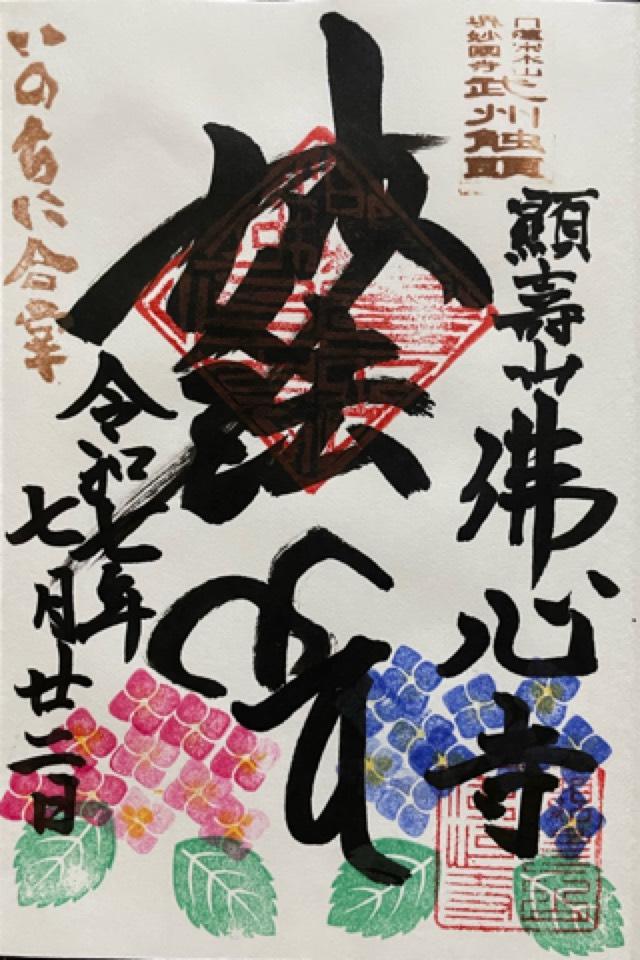 日蓮宗本山
堺妙國寺
武州触頭
顯壽山佛心寺
妙法
令和七年
七月廿二日
いのちに合掌